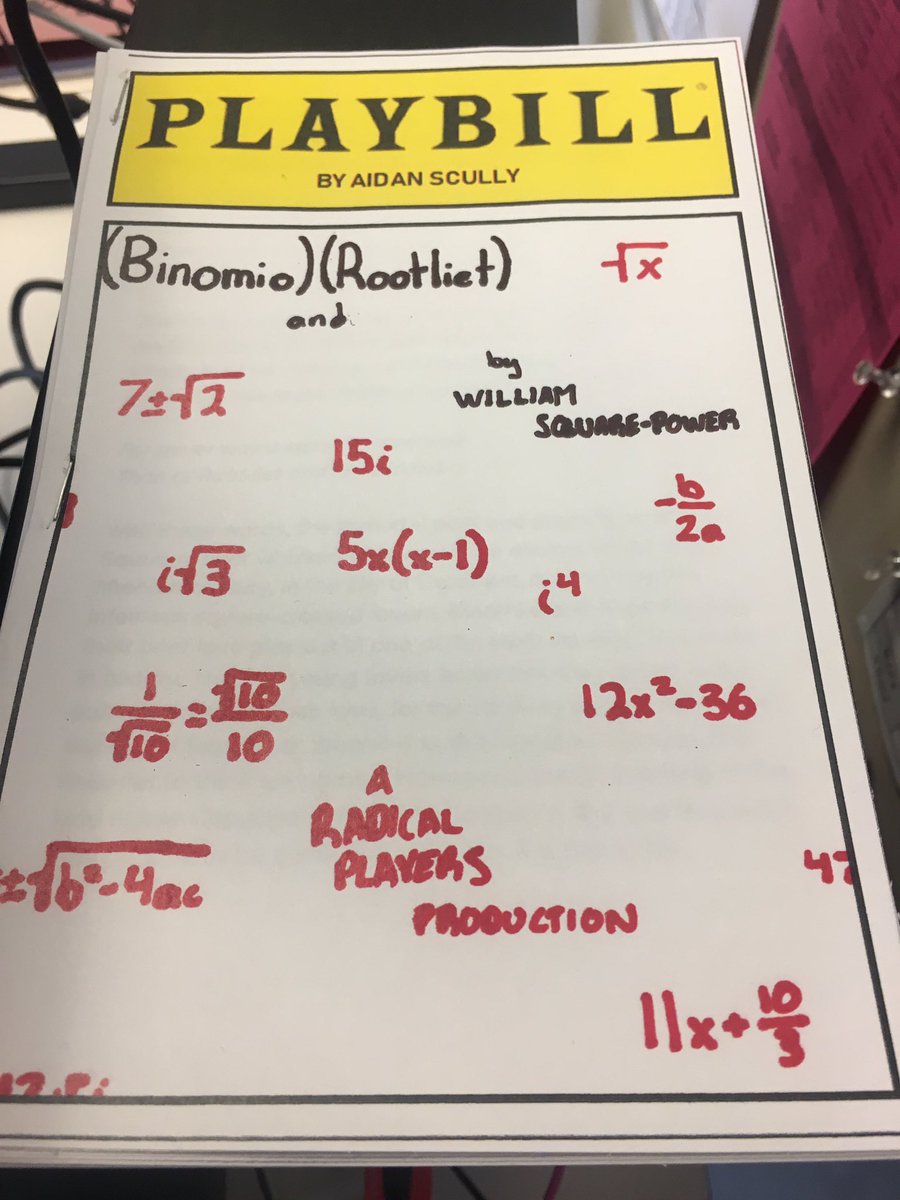 PLAYBILL
BY AIDAN SCULLY
(Binomio)(Rootliet)
and
√x
by
WILLIAM
SQUARE-POWER
7±√2
15i
-b/2a
i√3
5x(x-1)
i⁴
1/√10 = √10/10
12x²-36
A
RADICAL
PLAYERS
PRODUCTION
±√b²-4ac
47
11x+10/3